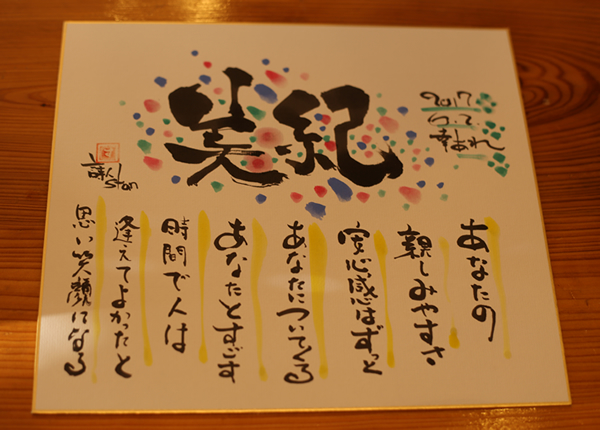 美紀
2017
幸あれ
あなたの
親しみやすさ
安心感はずっと
あなたについてくる
あなたとすごす
時間で人は
逢えてよかったと
思い笑顔になる
詩人 stan